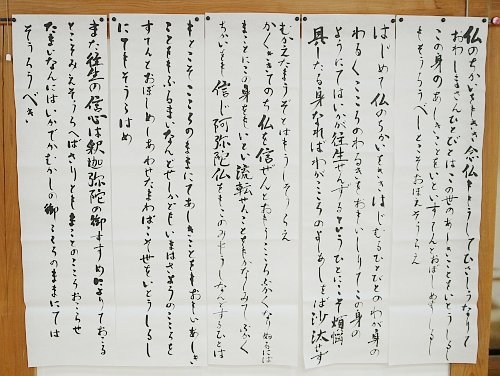 仏のちかいをもきき念仏ももうしてひさしうなりて
おわしまさんひとびとはこの世のあしきことをもいとうしるし
この身のあしきことをもいといすてんとおぼしめすしるし
もそうろうべしとこそおぼえそうらえ
はじめて仏のちかいをききはじむるひとびとのわが身の
わるくこころのわるきをおもいしりてこの身の
ようにてはいかが往生せんずるというひとにこそ煩悩
具したる身なればわがこころのよしあしをば沙汰せず
むかえたもうぞとはもうしそうらえ
かくききてのち仏を信ぜんとおもうこころふかくなりぬるには
まことにこの身をもいとい流転せんことをもかなしみてふかく
ちかいをも信じ阿弥陀仏をもこのみもうしなんどするひとは
もとこそこころのままにてあしきことをもおもいあしき
ことをもふるまいなんどせしかどもいまはさようのこころを
すてんとおぼしめしあわせたまわばこそ世をいとうしるし
にてもそうらわめ
また往生の信心は釈迦弥陀の御すすめによりておこる
とこそみえそうらえばさりともまことのこころおこらせ
たまいなんにはいかでかむかしの御こころのままにては
そうろうべき